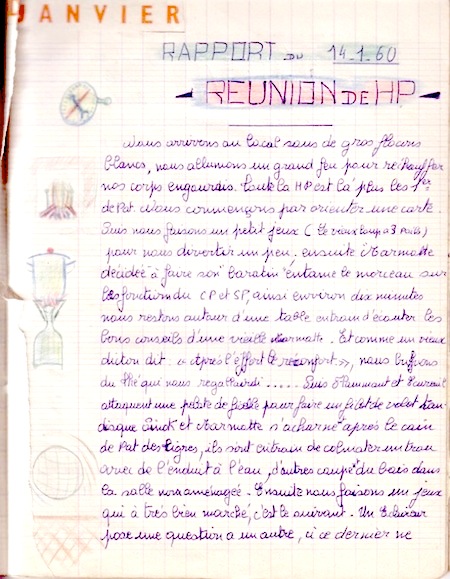 JANVIER
RAPPORT DU 14-1-60
REUNION DE HP
Nous arrivons au local sous de gros flocons
blancs, nous allumons un grand feu pour réchauffer
nos corps engourdis. toute la HP est là plus les 1er
de Pat. Nous commençons par orienter une carte.
Puis nous faisons un petit jeux ( le vieux loup à 3 Poils)
pour nous divertir un peu. ensuite Marmotte
décidée à faire son baratin entame le morceau sur
les fonction du CP et SP, ainsi environ dix minutes
nous restons autour d'une table entrain d'écouter les
bons conseils d'une vieille Marmotte. Et comme un vieux
dicton dit: " Après l'effort le réconfort ", nous buvons
du thé qui nous regaillardi ..... Puis Flammant et Ecureuil
attaquent une pelote de ficelle pour faire un filet de volet tan-
disque et Marmotte s'acharne après le coin
de Pat des tigres, ils sont entrain de colmater un trou
avec de l'enduit à l'eau, d'autres coupe du bois dans
la salle non aménagée. Ensuite nous faisons un jeux
qui à très bien marché, c'est le suivant. Un Eclaireur
pose une question a un autre, si ce dernier ne